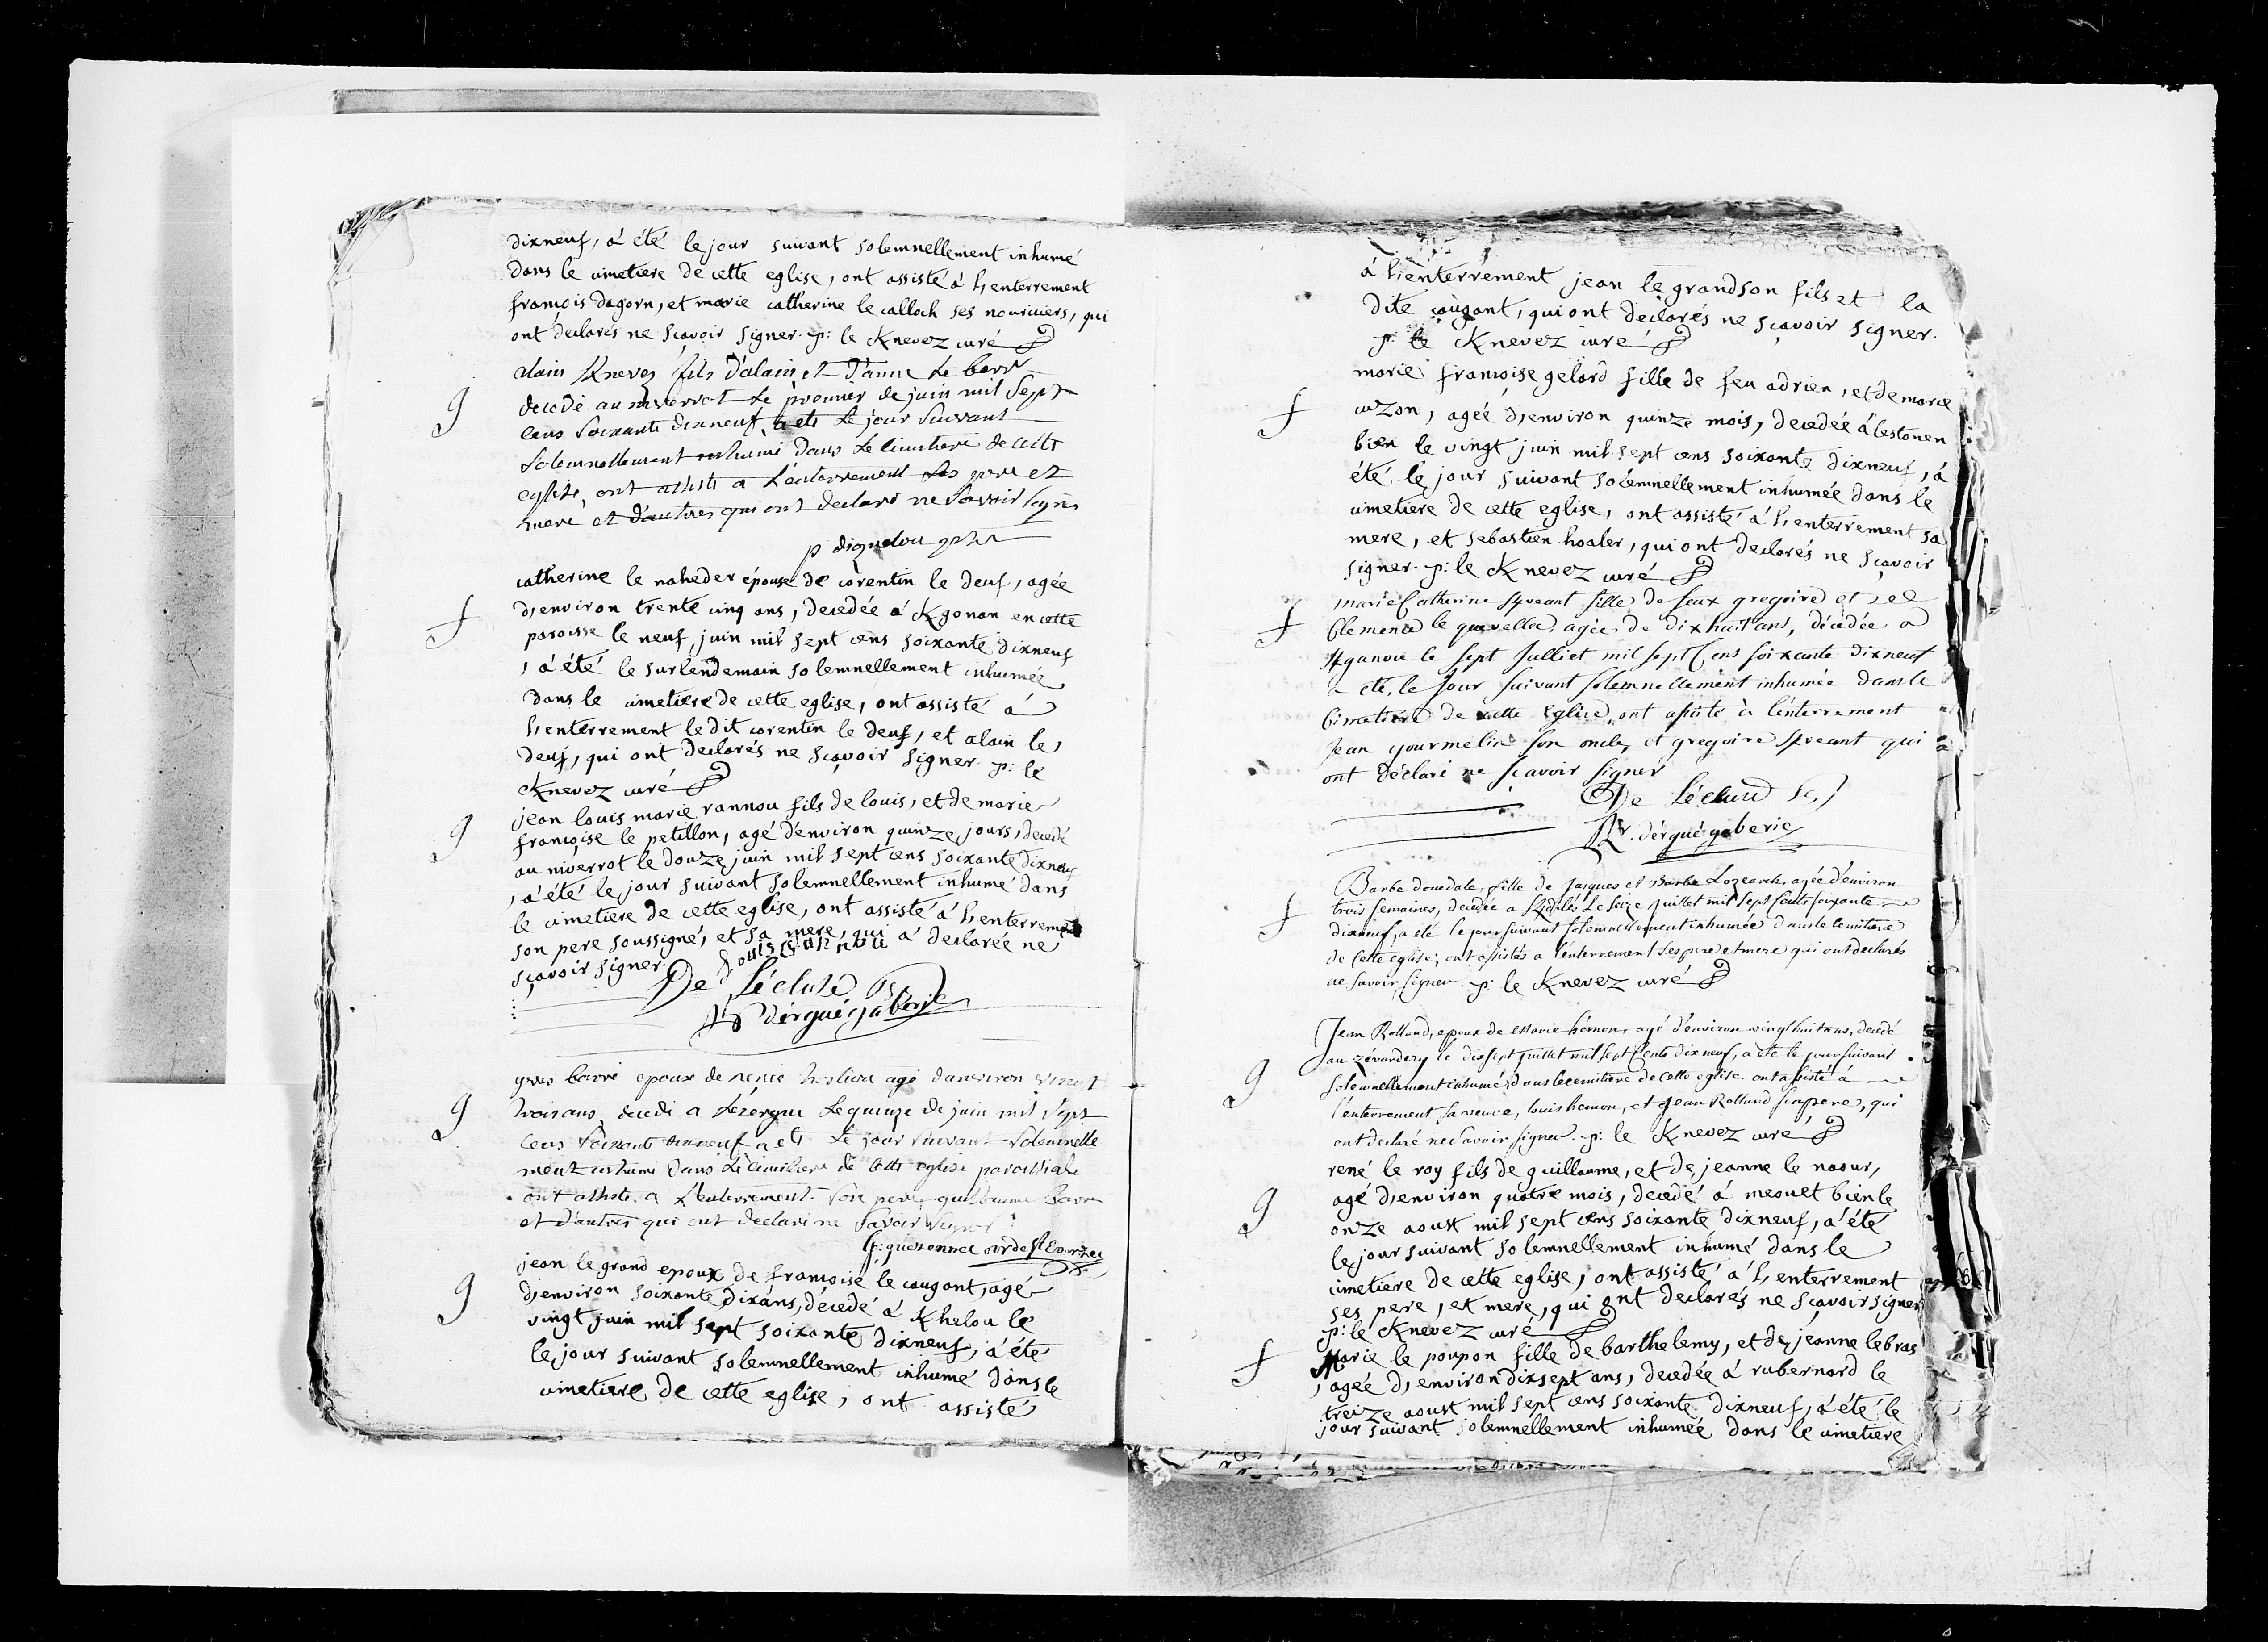 dixneuf, á été le jour suivant solemnellement inhumé
dans le cimetiere de cette eglise, ont assisté á l'enterrement
françois dagorn, et marie catherine le calloch ses nouriciers, qui
ont declarés ne sçavoir signer. p: le Knevez curé
alain Knevez fils d'alain et d'anne Le barr
g
decedé au niverrot Le premier de juin mil Sept
cens Soixante dixneuf a eté Le jour Suivant
Solemnellement inhumé dans Le Cimetiere de cette
eglise, ont assisté a L'enterrement Ses pere et
mere et d'autres qui ont declaré ne Savoir signer
catherine le naheder épouse de corentin le deuf, agée
f
d'environ trente cinq ans, decedée á Kgonan en cette
paroisse le neuf juin mil sept cens soixante dixneuf
, á été le surlendemain solemnellement inhumée
dans le cimetiere de cette eglise, ont assisté á
l'enterrement le dit corentin le deuf, et alain le
deuf, qui ont declarés ne sçavoir signer. p: le
Knevez curé
jean louis marie rannou fils de louis, et de marie
g
françoise le petillon, agé d'environ quinze jours, decedé
au niverrot le douze juin mil sept cens soixante dixneuf
, á été le jour suivant solemnellement inhumé dans
le cimetiere de cette eglise, ont assisté á l'enterrement
son pere soussigné, et sa mere, qui á declarée ne
sçavoir signer. Louis rannou
De Lécluse
dérguégaberic
yves barré epoux de renée agé d'anviron vingt
g
trois ans, decedi a Lezergue Le quinze de juin mil Sept
cens Soixante dixneuf a eté Le jour Suivant Solemnelle
ment inhumé dans Le Cimetiere de Cette eglise paroissiale
ont assisté a L'enterrement Son pere, guillaume Barre
et d'autres qui ont declaré ne Savoir Signer
f: guezennec de St Evarzec
jean le grand epoux de françoise le cougant, agé
g
d'environ soixante dixáns, decedé á Khelou le
vingt juin mil sept soixante dixneuf, á été
le jour suivant solemnellement inhumé dans le
cimetiere de cette eglise, ont assisté
á l'enterrement jean le grand son fils et la
dite cougant, qui ont declarés ne sçavoir signer.
p: le Knevez curé
marie françoise gelard fille de feu adrien, et de marie
f
cuzon, ageé d'environ quinze mois, decedée á lestonen
bien le vingt juin mil sept cens soixante dixneuf, á
été le jour suivant solemnellement inhumée dans le
cimetiere de cette eglise, ont assisté á l'enterrement sa
mere, et sebastien hoaler, qui ont declarés ne sçavoir
signer. p: le Knevez curé
marie Catherine Spreant fille de feux gregoire et de
f
Clemence le quevellec agée de dixhuit ans, décédée a
Kganou le sept Julliet mil sept Cens soixante dixneuf
a eté, le Jour suivant solemnellement inhumée dans le
Cimetiere de cette Eglise, ont assisté à l'enterrement
Jean gourmelin son oncle, et gregoire Spreant qui
ont déclaré ne sçavoir signer
De Lécluse
Rr. dérguégaberic
Barbe douedale, fille de Jacques et Barbe Lozeach, agée d'environ
f
trois semaines, decedée a Le seize juillet mil sept Cents soixante
dixneuf, a été le jour suivant solemnellement inhumée dans le cemitiere
de Cette eglise; ont assistés a l'enterrement ses pere et mere qui ont declarés
ne savoir signer. p: le Knevez curé
Jean Rolland, epoux de Marie hémon, agé d'environ vingt huit ans, decedé
au zévardery le dix sept juillet mil sept Cents dixneuf, a été le jour suivant
g
solemnellement inhumé dans le cemitiere de Cette eglise. ont assisté á
l'enterrement sa veuve, louis hemon, et Jean Rolland son pere, qui
ont declaré ne savoir signer. p: le Knevez curé
rené le roy fils de guillaume, et de jeanne le naour,
g
agé d'environ quatre mois, decedé á meouet bien le
onze aoust mil sept cens soixante dixneuf, á été
le jour suivant solemnellement inhumé dans le
cimetiere de cette eglise, ont assisté á l'enterrement
ses pere, et mere, qui ont declarés ne sçavoir signer
p: le Knevez curé
f
Marie le poupon fille de barthelemy, et de jeanne le bras
, agée d'environ dixsept ans, decedée á rubernard le
treize aoust mil sept cens soixante dixneuf, á été le
jour suivant solemnellement inhumée dans le cimetiere